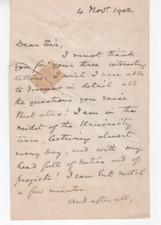 4 Nov.r 1902
Dear Sir,
I must thank
you for your three interesting
letters. I wish I were able
to discuss in detail all
the questions you raise
But alas! I am in the
midst of the University
term, lecturing almost
every day, and with my
head full of duties and of
projects! I can but snatch
a few minutes
And after all,